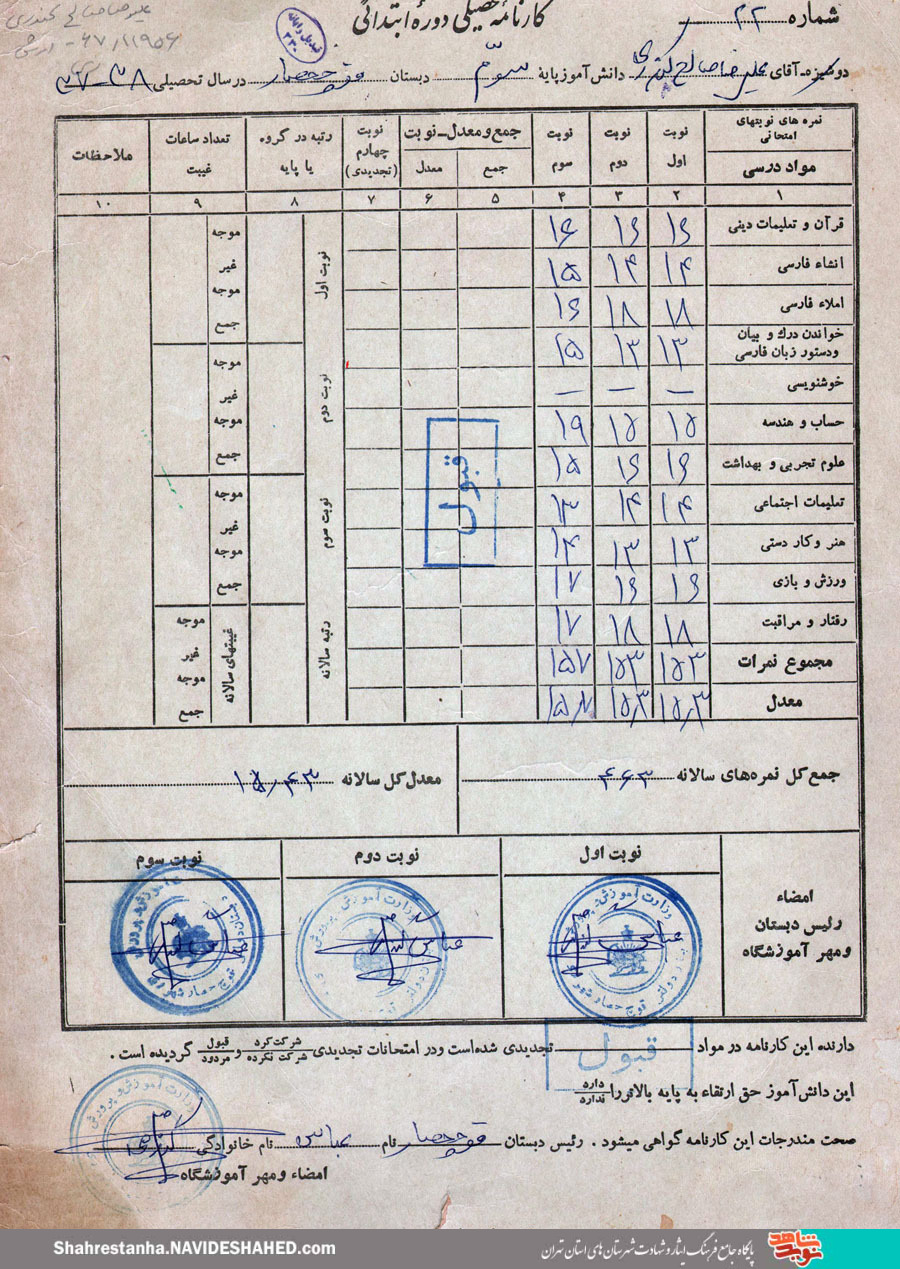 شماره ۲۲
کارنامه تحصیلی دوره ابتدائی
دوشیزه-آقای علیرضا صالح دانش آموز پایهٔ سوّم دبستان قوچ حصار در سال تحصیلی
نمره های نوبتهای امتحانی نوبت اول نوبت دوم نوبت سوم جمع و معدل-نوبت نوبت چهارم (تجدیدی) رتبه در گروه یا پایه تعداد ساعات غیبت ملاحظات
مواد درسی جمع معدل
۱ ۲ ۳ ۴ ۵ ۶ ۷ ۸ ۹ ۱۰
قرآن و تعلیمات دینی ۱۶ ۱۶ ۱۶
انشاء فارسی ۱۴ ۱۴ ۱۵
املاء فارسی ۱۸ ۱۸ ۱۶
خواندن درك و بیان ودستور زبان فارسی ۱۳ ۱۳ ۱۵
خوشنویسی — — —
حساب و هندسه ۱۵ ۱۵ ۱۹
علوم تجربی و بهداشت ۱۶ ۱۶ ۱۵
تعلیمات اجتماعی ۱۴ ۱۴ ۱۳
هنر و کار دستی ۱۳ ۱۳ ۱۴
ورزش و بازی ۱۶ ۱۶ ۱۷
رفتار و مراقبت ۱۸ ۱۸ ۱۷
مجموع نمرات ۱۵۳ ۱۵۳ ۱۵۷
معدل ۱۵٫۳ ۱۵٫۳ ۱۵٫۷
نوبت اول موجه غیر موجه جمع
نوبت دوم موجه غیر موجه جمع
نوبت سوم موجه غیر موجه جمع
رتبه سالانه غیبتهای سالانه موجه غیر موجه جمع
قبول
جمع کل نمره‌های سالانه ۴۶۳ معدل کل سالانه ۱۵٫۴۳
امضاء رئیس دبستان ومهر آموزشگاه نوبت اول نوبت دوم نوبت سوم
دارنده این کارنامه در مواد تجدیدی شده‌است ودر امتحانات تجدیدی شرکت کرده شرکت نکرده و قبول مردود گردیده است .
قبول
این دانش‌آموز حق ارتقاء به پایه بالاتررا دارد ندارد
صحت مندرجات این کارنامه گواهی میشود . رئیس دبستان قوچ حصار نام عباس نام خانوادگی
امضاء ومهر آموزشگاه
Shahrestanha.NAVIDESHAHED.com
پایگاه جامع فرهنگ ایثار و شهادت شهرستان های استان تهران
نوید شاهد